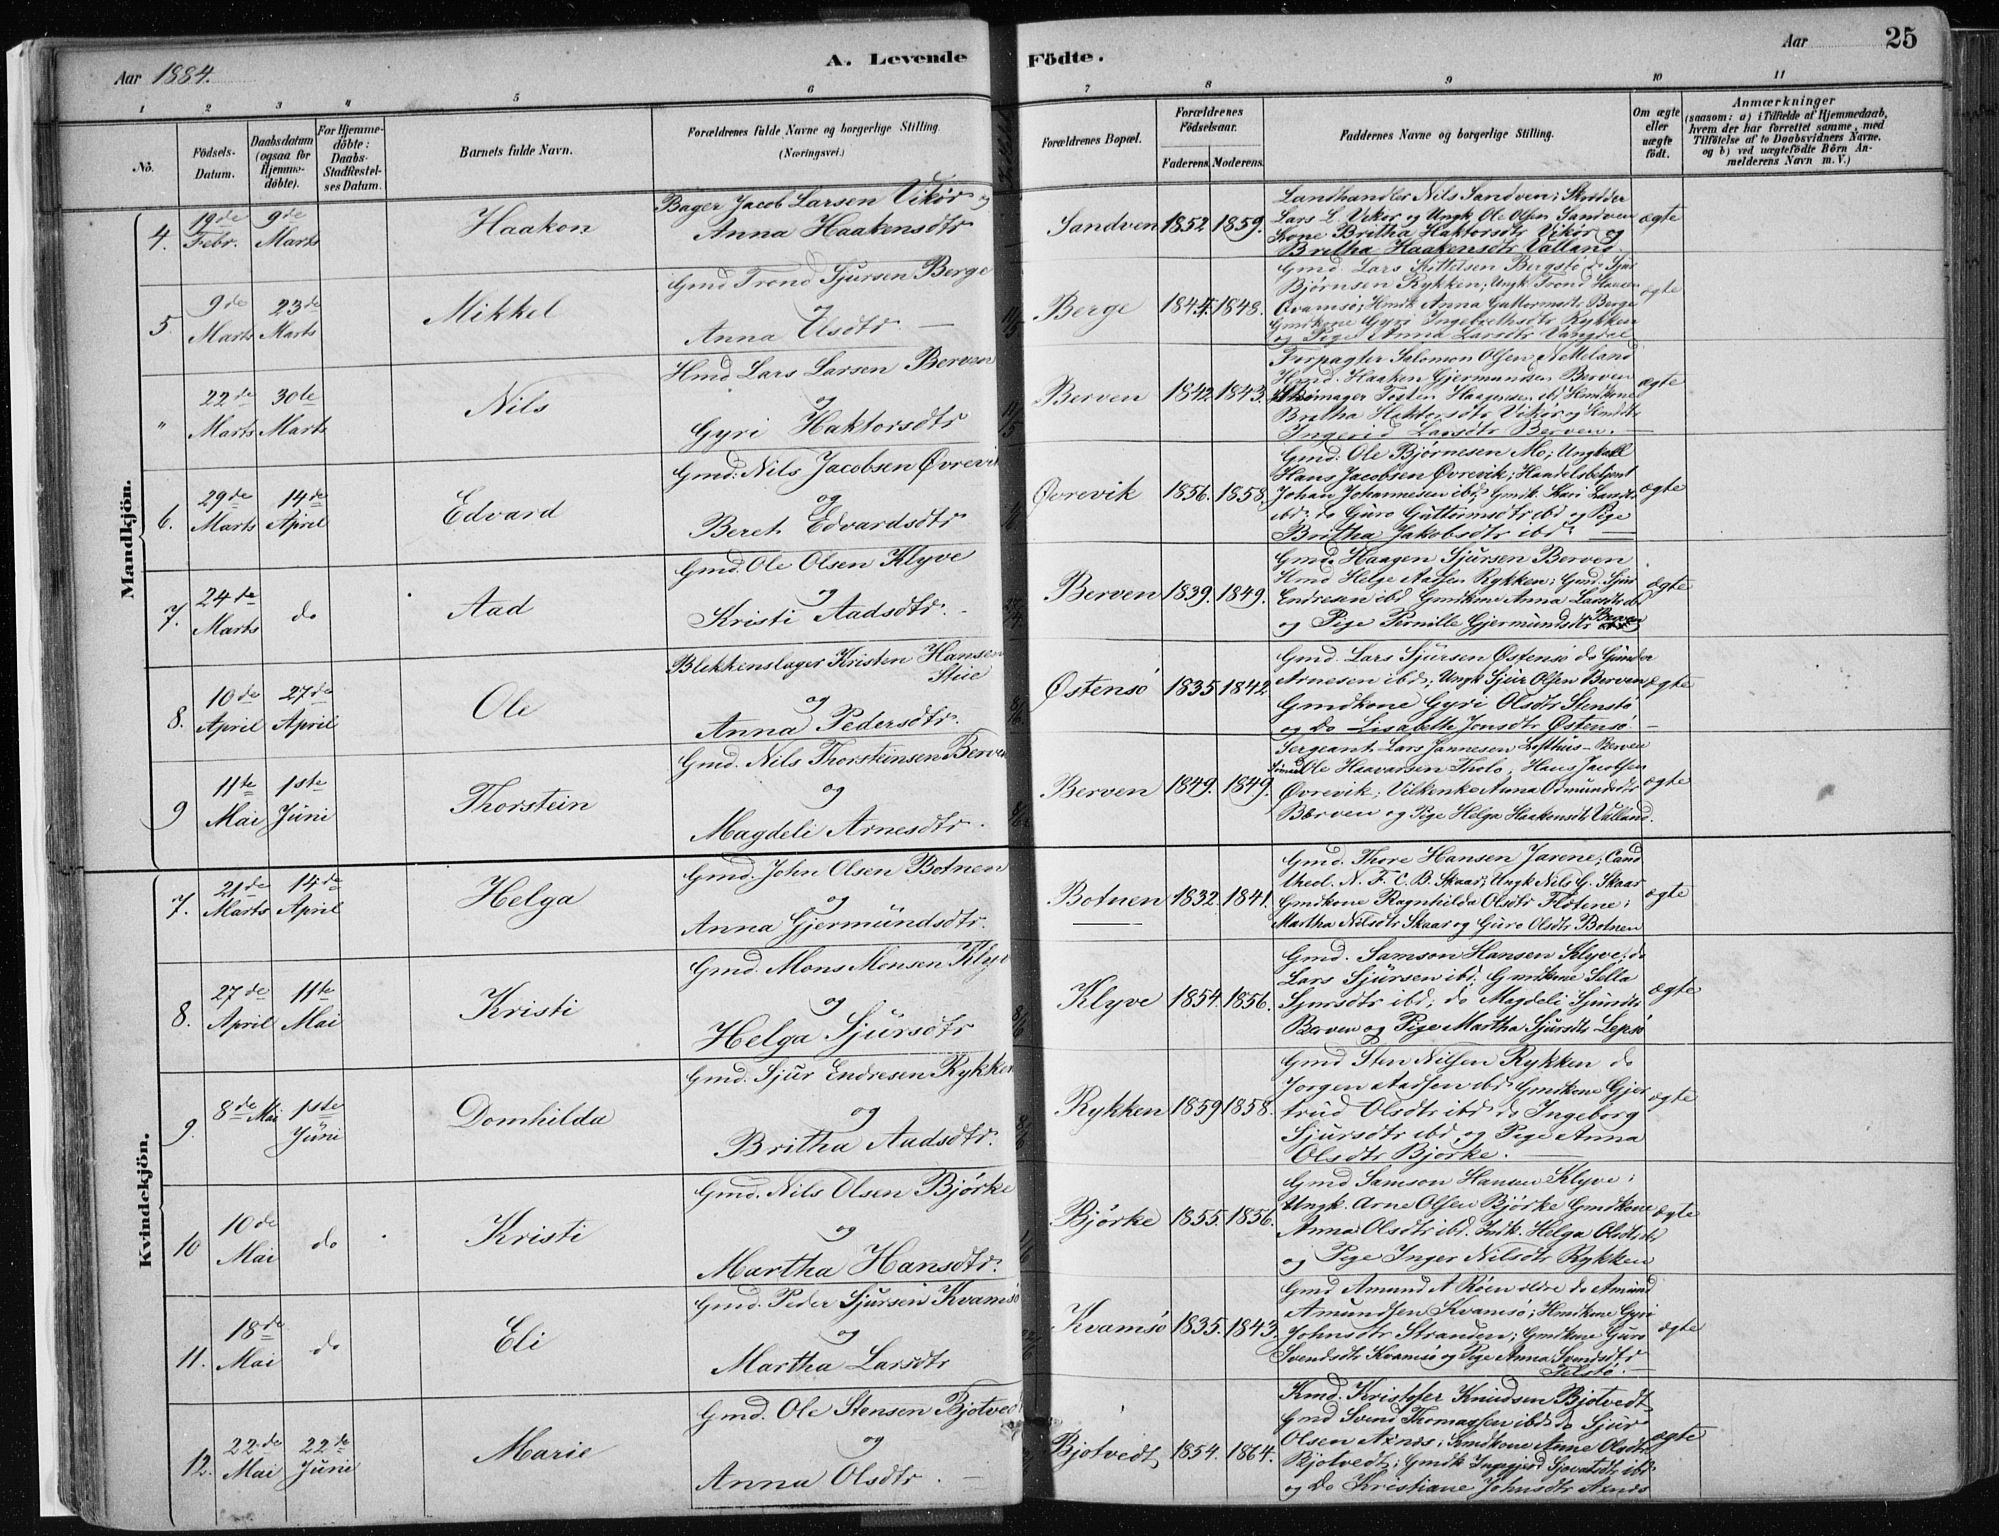 Aar 1884.
A. Levende
Födte.
Aar
25
1 2 3 4 5 6 7 8 9 10 11
No.
Födsels-Datum.
Daabsdatum (ogsaa for Hjemmedöbte).
For Hjemmedöbte: Daabs-Stadfæstelses Datum.
Barnets fulde Navn.
Forældrenes fulde Navne og borgerlige Stilling. (Næringsvei.)
Forældrenes Bopæl.
Forældrenes Födselsaar.
Faderens. Moderens.
Faddernes Navne og borgerlige Stilling.
Om ægte eller uægte födt.
Anmærkninger
(saasom: a) i Tilfælde af Hjemmedaab, hvem der har forrettet samme, med Tilföielse af to Daabsvidners Navne. og b) ved uægtefödte Börn Anmelderens Navn m. V.)
Mandkjön.
4. 19de Febr. 9de Marts
Haakon
Bager Jacob Larsen Vikör og
Anna Haakensdtr
Sandven 1852 1859.
Landhandler Nils Sandven; Skrædder
Lars L. Vikör og Ungk Ole Olsen Sandven
Kone Britha Haktorsdtr Vikör og
Britha Haakensdtr Valland.
ægte
5. 9de Marts 23de Marts
Mikkel
Gmd Trond Sjursen Berge
og
Anna Olsdtr.
Berge 1844. 1848.
Gmd. Lars Kittelsen Bergstö do Sjur
Björnsen Rykken; Ungk Trond Hansen
Kvamsö; Hmdk Anna Guttormsdtr Berge
Gmdkone Gyri Ingebrethsdtr Rykken
og Pige Anna Larsdtr Vangdal
ægte
" 22de Marts 30te Marts
Nils
Hmd Lars Larsen Berven
og
Gyri Haktorsdtr
11/5
Berven 1842 1843.
Forpagter Salomon Olsen Netteland
Hmd. Haaken Gjermundsen Berven
Skomager Tosten Haagensen ibd; Hmdkone
Britha Haktorsdtr Vikör og Hmdk
Ingerid Larsdtr Berven.
ægte
6. 29de Marts 14de April
Edvard
Gmd. Nils Jacobsen Øvrevik
og
Beret Edvardsdtr
Øvrevik 1856. 1858.
Gmd. Ole Björnesen Mo; Ungkall
Hans Jacobsen Øvrevik; Handelsbetjent
Johan Johannesen ibd; Gmdk. Kari Larsdtr
ibd; do Guro Guttormsdtr ibd og Pige
Britha Jakobsdtr ibd.
ægte
7. 24de Marts do
Aad
Gmd. Ole Olsen Klyve
og
Kristi Aadsdtr.
Berven 1839. 1849.
Gmd. Haagen Sjursen Berven
Hmd Helge Aadsen Rykken; Gmd. Sjur
Endresen ibd Gmdkone Anna Larsdtr ibd
og Pige Pernille Gjermundsdtr Berven
ægte
8. 10de April 27de April
Ole
Blikkenslager Kristen Hansen
Stue
og
Anna Pedersdtr.
8/6
Østensö 1835 1842
Gmd. Lars Sjursen Østensö do Gunder
Arnesen ibd; Ungk Sjur Olsen Berven
Gmdkone Gyri Olsdtr Stenstö
og Do Lisabeth Jonsdtr Østensö.
ægte
9 11te Mai 1ste Juni
Thorstein
Gmd. Nils Thorstensen Berven
og
Magdeli Arnesdtr.
8/6
Berven 1849. 1849.
Sergeant Lars Jannesen Lofthus Berven
Ole Haavarsen Tholo; Hans Jacobsen
Øvrevik; Vilkenke Anna Osmundsdtr
Berven og Pige Helga Haakensdtr Valland.
ægte
Kvindekjön.
7. 21de Marts 14de April
Helga
Gmd. John Olsen Botnen
og
Anna Gjermundsdtr.
Botnen 1832. 1841.
Gmd. Thore Hansen Jarene; Cand
theol. N. F. C. B. Skaar; Ungk Nils G. Skaar
Gmdkone Ragnhilda Olsdtr Flotene;
Martha Nilsdtr Skaar og Guro Olsdtr Botnen
ægte
8. 27de April 11te Mai
Kristi
Gmd. Mons Monsen Klyve
og
Helga Sjursdtr
8/6
Klyve 1854. 1856.
Gmd. Samson Hansen Klyve; do
Lars Sjursen ibd; Gmdkone Sella
Sjursdtr ibd; do Magdeli Sjursdtr
Berven og Pige Martha Sjursdtr Lepsö
ægte
9. 8de Mai 1ste Juni
Domhilda
Gmd. Sjur Endresen Rykken
og
Britha Aadsdtr.
8/6
Rykken 1859 1858.
Gmd Sten Nilsen Rykken do
Jorgen Aadsen ibd Gmdkone Gjer
trud Olsdtr ibd, do Ingeborg
Sjursdtr ibd, og Pige Anna
Olsdtr Bjorke.
ægte
10 10de Mai do
Kristi
Gmd. Nils Olsen Björke
og
Martha Hansdtr.
Björke 1855. 1856.
Gmd Samson Hansen Klyve;
Ungk. Arne Olsen Björke Gmdkone
Anna Olsdtr ibd. Indk. Helga Olsdtr ibd
og Pige Inger Nilsdtr Rykken
ægte
11. 18de Mai do
Eli
Gmd. Peder Sjursen Kvamsö
og
Martha Larsdtr
22/6
Kvamsö 1835. 1843.
Gmd Amund A Röen eldre do Amund
Amundsen Kvamsö; Hmdkone Gyri
Johnsdtr Stranden; Gmdkone Guro
Svendsdtr Kvamsö og Pige Anna Svendsdtr
Tilstö.
ægte
12. 22de Mai 22de Juni
Marie
Gmd. Ole Stensen Bjotvedt
og
Anna Olsdtr.
Bjotvedt 1854. 1864.
Kmd. Kristofer Knudsen Bjotvedt
Gmd Svend Thomassen ibd; do Sjur
Olsen Axnæs; Gmdkone Anne Olsdtr
Bjotvedt; Gmdk Ingegjerd Sjovatsdtr ibd
og Do Kristiane Johnsdtr Axnæs
ægte